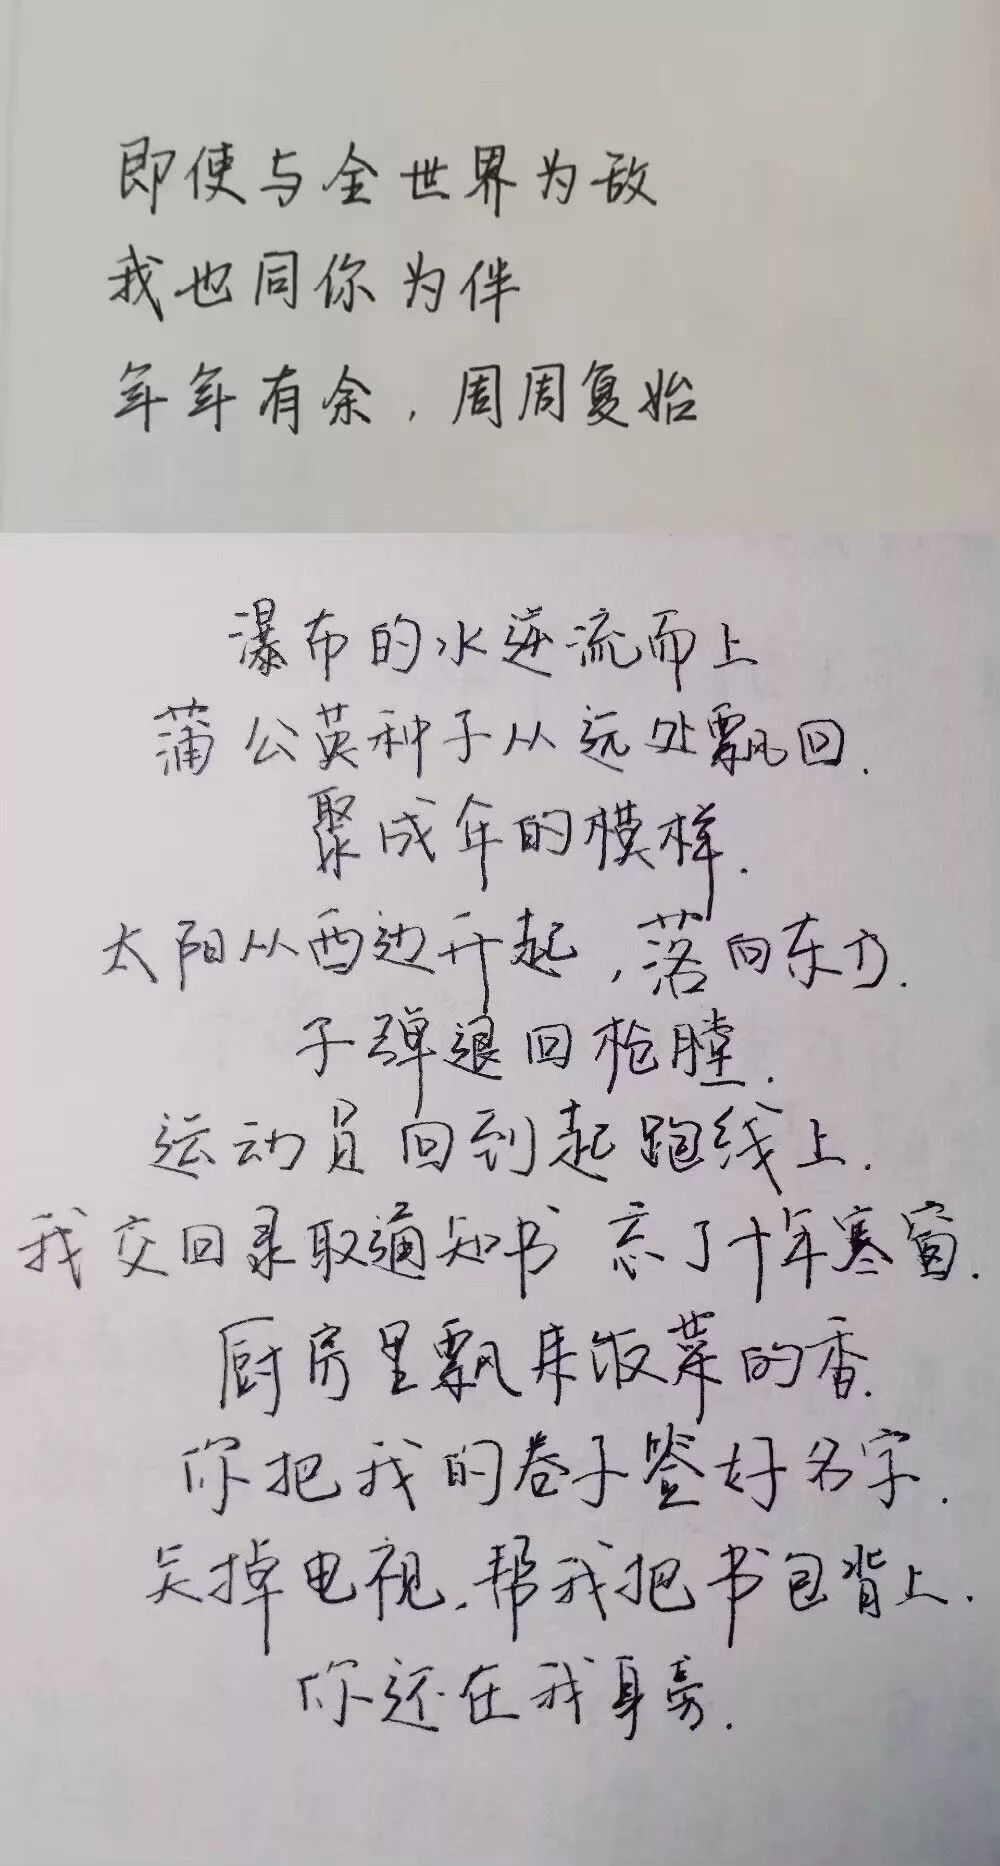 即使与全世界为敌
我也同你为伴
年年有余，周周复始
瀑布的水逆流而上
蒲公英种子从远处飘回.
聚成伞的模样.
太阳从西边升起，落向东方.
子弹退回枪膛.
运动员回到起跑线上.
我交回录取通知书 忘了十年寒窗.
厨房里飘来饭菜的香.
你把我的卷子签好名字.
关掉电视，帮我把书包背上.
你还在我身旁.